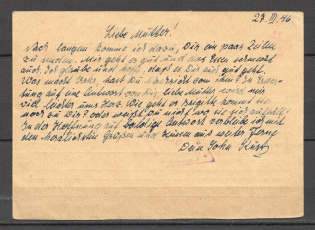 27. III. 46.
Liebe Mutter!
Nach langem komme ich dazu, Dir ein paar Zeilen
zu senden. Mir geht es gut und das Essen
auch. Ich glaube und hoffe, daß es Dir auch gut geht.
Was macht hast Du Nachricht von ihm? In
auf eine Antwort von Dir, liebe Mutter wird mir
viel leichter ums Herz. Wie geht es Brigitte kommt sie
noch zu Dir? oder weißt Du nicht wo sie sich aufhält?
In der Hoffnung auf baldige Antwort verbleibe ich mit
den herzlichsten Grüßen und Küssen aus weiter Ferne
Dein Sohn Kurt